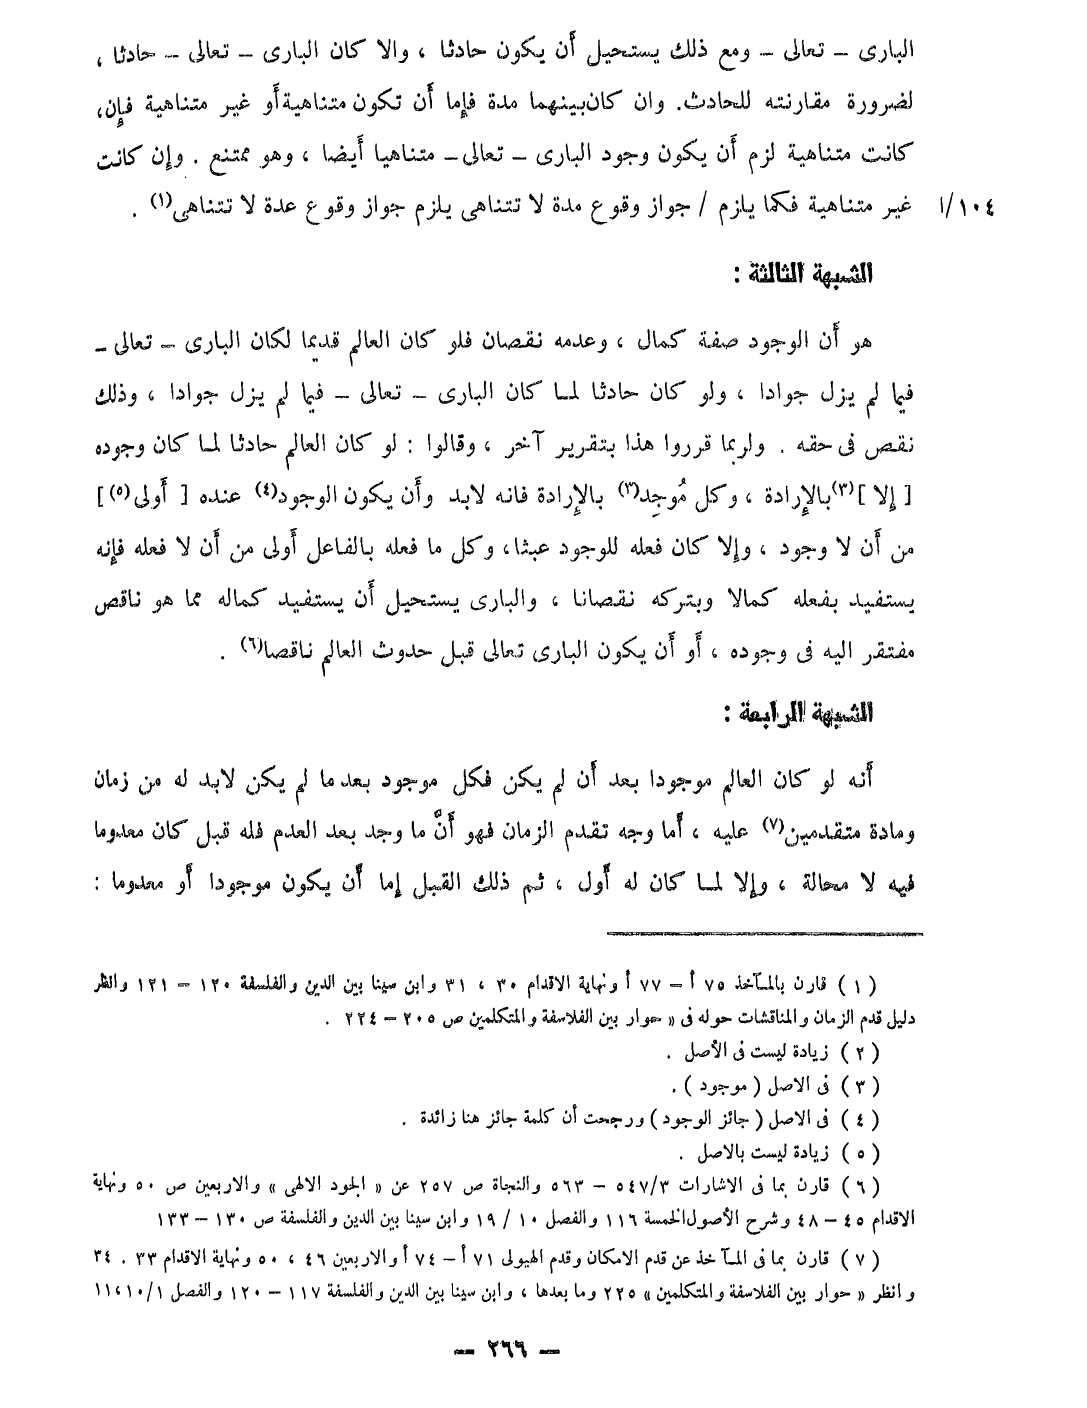 البارى – تعالى – ومع ذلك يستحيل أَن يكون حادثا ، والا كان البارى – تعالى – حادثا ،
لضرورة مقارنته للحادث. وان كان بينهما مدة فإما أَن تكون متناهية أَو غير متناهية فإِن،
كانت متناهية لزم أَن يكون وجود البارى – تعالى– متناهيا أَيضا ، وهو ممتنع . وإِن كانت
١٠٤/ا غير متناهية فكما يلزم / جواز وقوع مدة لا تتناهى يلزم جواز وقوع عدة لا تتناهى(١) .
الشبهة الثالثة :
هو أَن الوجود صفة كمال ، وعدمه نقصان فلو كان العالم قديما لكان البارى – تعالى –
فيما لم يزل جوادا ، ولو كان حادثا لمـا كان البارى – تعالى – فيما لم يزل جوادا ، وذلك
نقص فى حقه . ولربما قرروا هذا بتقرير آخر ، وقالوا : لو كان العالم حادثا لمـا كان وجوده
[ إلا ](٣)بالإِرادة ، وكل مُوجِد(٣) بالإِرادة فانه لابد وأَن يكون الوجود(٤) عنده [ أَولى(٥) ]
من أَن لا وجود ، وإِلا كان فعله للوجود عبثا، وكل ما فعله بالفاعل أَولى من أَن لا فعله فإِنه
يستفيد بفعله كمالا وبتركه نقصانا ، والبارى يستحيل أَن يستفيد كماله مما هو ناقص
مفتقر اليه فى وجوده ، أَو أَن يكون البارى تعالى قبل حدوث العالم ناقصا(٦) .
الشبهة الرابعة :
أَنه لو كان العالم موجودا بعد أَن لم يكن فكل موجود بعد ما لم يكن لابد له من زمان
ومادة متقدمين(٧) عليه ، أَما وجه تقدم الزمان فهو أَنَّ ما وجد بعد العدم فله قبل كان معدوما
فيه لا محالة ، وإِلا لمـا كان له أَول ، ثم ذلك القبل إِما أَن يكون موجودا أَو معدوما :
( ١ ) قارن بالمـآخذ ٧٥ أ – ٧٧ أ ونهاية الاقدام ٣٠ ، ٣١ وابن سينا بين الدين والفلسفة ١٢٠ – ١٢١ وانظر
دليل قدم الزمان والمناقشات حوله فى « حوار بين الفلاسفة والمتكلمين ص ٢٠٥ – ٢٢٤ .
( ٢ ) زيادة ليست فى الأصل .
( ٣ ) فى الاصل ( موجود ) .
( ٤ ) فى الاصل ( جائز الوجود ) ورجحت أن كلمة جائز هنا زائدة .
( ٥ ) زيادة ليست بالاصل .
( ٦ ) قارن بما فى الاشارات ٥٤٧/٣ – ٥٦٣ والنجاة ص ٢٥٧ عن « الجود الالهى » والاربعين ص ٥٠ ونهاية
الاقدام ٤٥ – ٤٨ وشرح الأصول الخمسة ١١٦ والفصل ١٠ / ١٩ وابن سينا بين الدين والفلسفة ص ١٣٠ – ١٣٣
( ٧ ) قارن بما فى المـآخذ عن قدم الامكان وقدم الهيولى ٧١ أ – ٧٤ أ والاربعين ٤٦ ، ٥٠ ونهاية الاقدام ٣٣ . ٣٤
وانظر « حوار بين الفلاسفة والمتكلمين » ٢٢٥ وما بعدها ، وابن سينا بين الدين والفلسفة ١١٧ – ١٢٠ والفصل ١٠/١،١١
— ٢٦٦ —